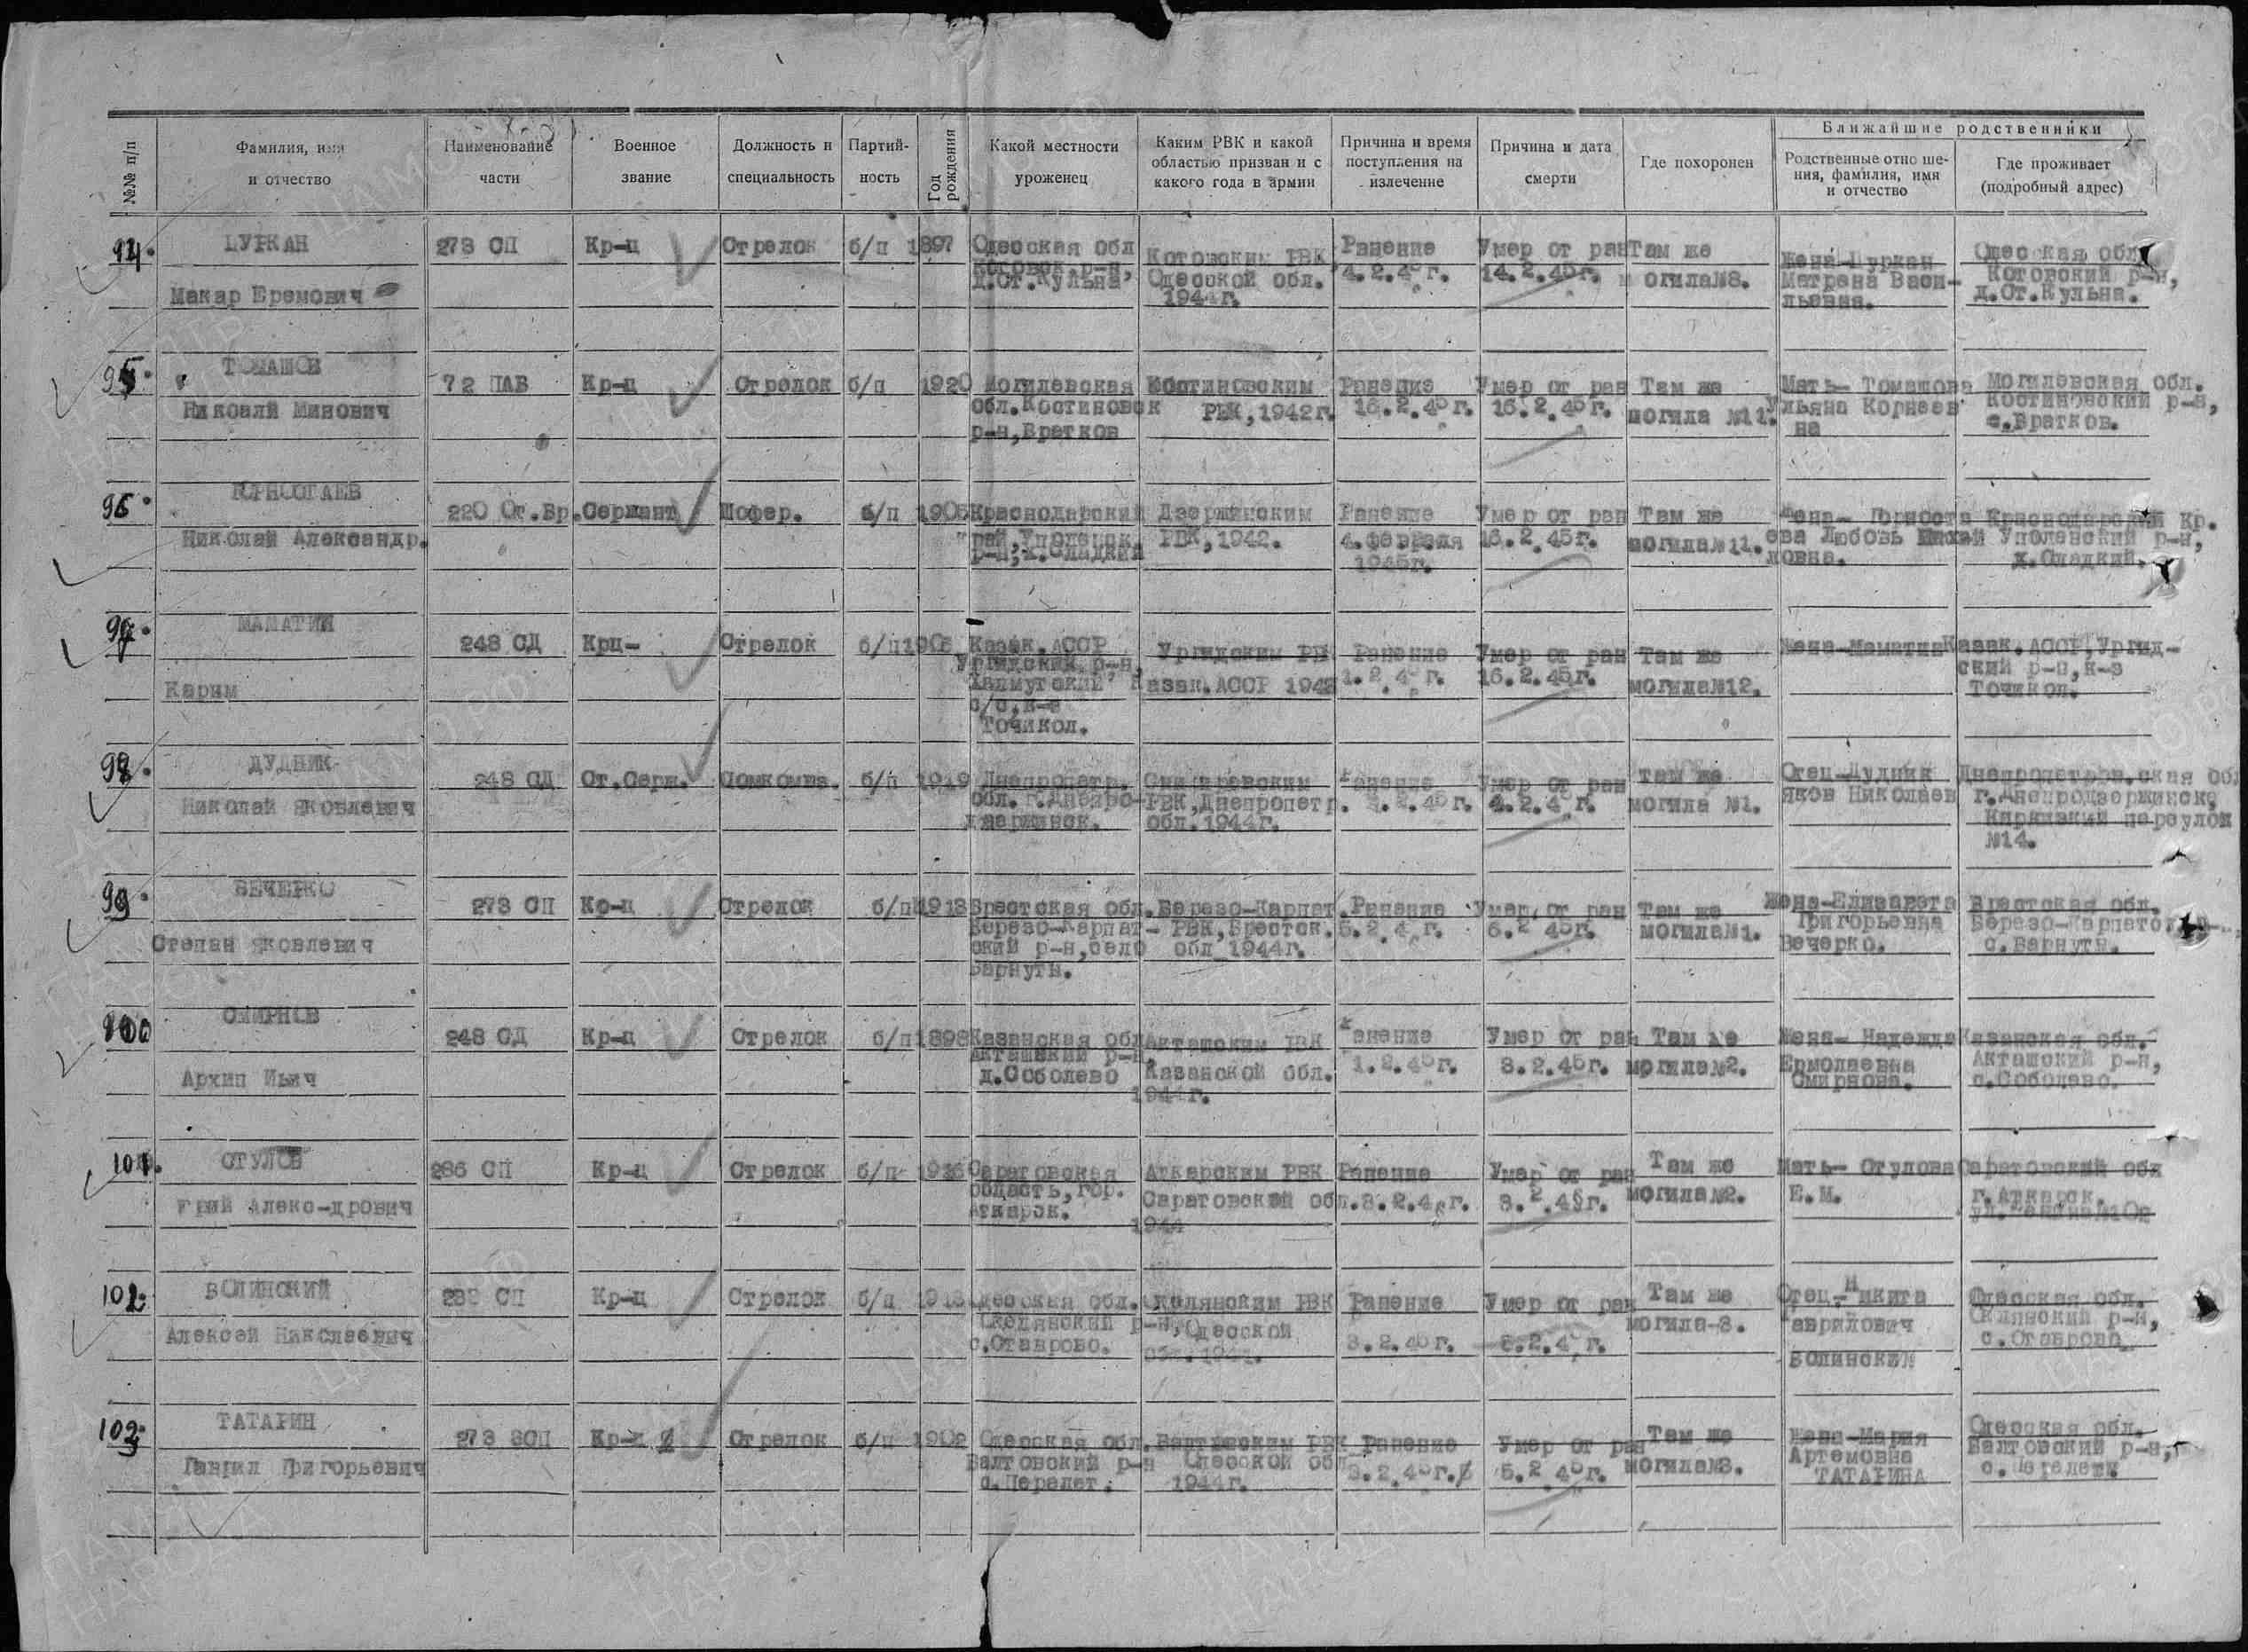 №№ п/п
Фамилия, имя
и отчество
Наименование
части
Военное
звание
Должность и
специальность
Партий-
ность
Год
рождения
Какой местности
уроженец
Каким РВК и какой
областью призван и с
какого года в армии
Причина и время
поступления на
излечение
Причина и дата
смерти
Где похоронен
Ближайшие родственники
Родственные отноше-
ния, фамилия, имя
и отчество
Где проживает
(подробный адрес)
94.
ЦУРКАН
Макар Еремович
273 СП
Кр-ц
Стрелок
б/п
1897
Одесская обл
Котовск.р-н,
д.Ст.Кульна
Котовским РВК
Одесской обл.
1944г.
Ранение
4.2.45г.
Умер от ран
14.2.45г.
Там же
могила№8.
Жена-Цуркан
Матрена Васи-
льевна.
Одесская обл
Котовский р-н,
д.Ст.Кульна.
95.
ТОМАШОВ
Николай Минович
72 ПАБ
Кр-ц
Стрелок
б/п
1920
Могилевская
обл.Костиновск
р-н,Братков
Костиновским
РВК,1942г.
Ранение
16.2.45г.
Умер от ран
16.2.45г.
Там же
могила №11.
Мать- Томашова
Ульяна Корнеев
на
Могилевская обл.
Костиновский р-н,
с.Братков.
96.
ГОРНОСТАЕВ
Николай Александр.
220 От.Бр.
Сержант
Шофер.
б/п
1905
Краснодарский
р-н,х.Сладкий
Дзержинским
РВК,1942.
Ранение
4.февраля
1945г.
Умер от ран
16.2.45г.
Там же
могила№11.
Жена- Горноста
ева Любовь Михай
ловна.
Краснодарский Кр.
Уполенский р-н,
х.Сладкий.
97.
МАМАТИИ
Карим
248 СД
Крц-
Стрелок
б/п
Казак.АССР
Ургидский р-н,
с/с,к-з
Точикол.
Ургидским РВ
Казак.АССР 1942
Ранение
1.2.45г.
Умер от ран
16.2.45г.
Там же
могила№12.
Жена-Маматии
Казак.АССР,Ургид-
ский р-н,к-з
Точикол.
98.
ДУДНИК
Николай Яковлевич
248 СД
Ст.Серж.
Помкомвз.
б/п
1919
Днепропетр.
обл.г.Днепро-
дзержинск.
РВК,Днепропетр.
обл.1944г.
Ранение
Умер от ран
4.2.45г.
Там же
могила №1.
Отец-Дудник
Яков Николаев
Днепропетров.ская обл
г.Днепродзержинск
переулок
№14.
99.
ВЕЧЕРКО
Степан Яковлевич
273 СП
Кр-ц
Стрелок
б/п
1913
Брестская обл.
Березо-Карпат-
ский р-н,село
Варнуты.
Березо-Карпат.
РВК,Брестск.
обл 1944г.
Ранение
5.2.45г.
Умер от ран
6.2 45г.
Там же
могила№1.
Жена-Елизавета
Григорьевна
Вечерко.
Брестская обл.
с.Варнуты.
100
СМИРНОВ
Архип Ильич
248 СД
Кр-ц
Стрелок
б/п
1898
Казанская обл
Акташский р-н,
д.Соболево
Акташским РВК
Казанской обл.
1944г.
Ранение
1.2.45г.
Умер от ран
3.2.45г.
Там же
могила№2.
Жена- Надежда
Ермолаевна
Смирнова.
Казанская обл.
Акташский р-н,
с.Соболево.
101.
СТУЛОВ
Юрий Алекс-дрович
286 СП
Кр-ц
Стрелок
б/п
1926
Саратовская
область,гор.
Аткарск.
Аткарским РВК
Саратовской обл.
1944
Ранение
3.2.45г.
Умер от ран
3.2.45г.
Там же
могила№2.
Мать- Стулова
Е.М.
Саратовский обл
г.Аткарск.
102.
ВОЛИНСКИЙ
Алексей Николаевич
Кр-ц
Стрелок
б/п
1913
Одесская обл.
р-н,
с.Ставрово.
РВК
Одесской
обл.1944г.
Ранение
3.2.45г.
Умер от ран
Там же
могила-3.
Отец-Никита
Гаврилович
ВОЛИНСКИЙ
Одесская обл.
р-н,
с.Ставрово
103.
ТАТАРИН
Гаврил Григорьевич
273 ЗСП
Кр-ц
Стрелок
б/п
1902
Одесская обл.
Балтовский р-н
с.Перелет.
Балтовским РВК
Одесской обл
1944г.
Ранение
3.2.45г.
Умер от ран
5.2 45г.
Там же
могила№3.
Жена-Мария
Артемовна
ТАТАРИНА
Одесская обл.
Балтовский р-н,
с.Перелеты